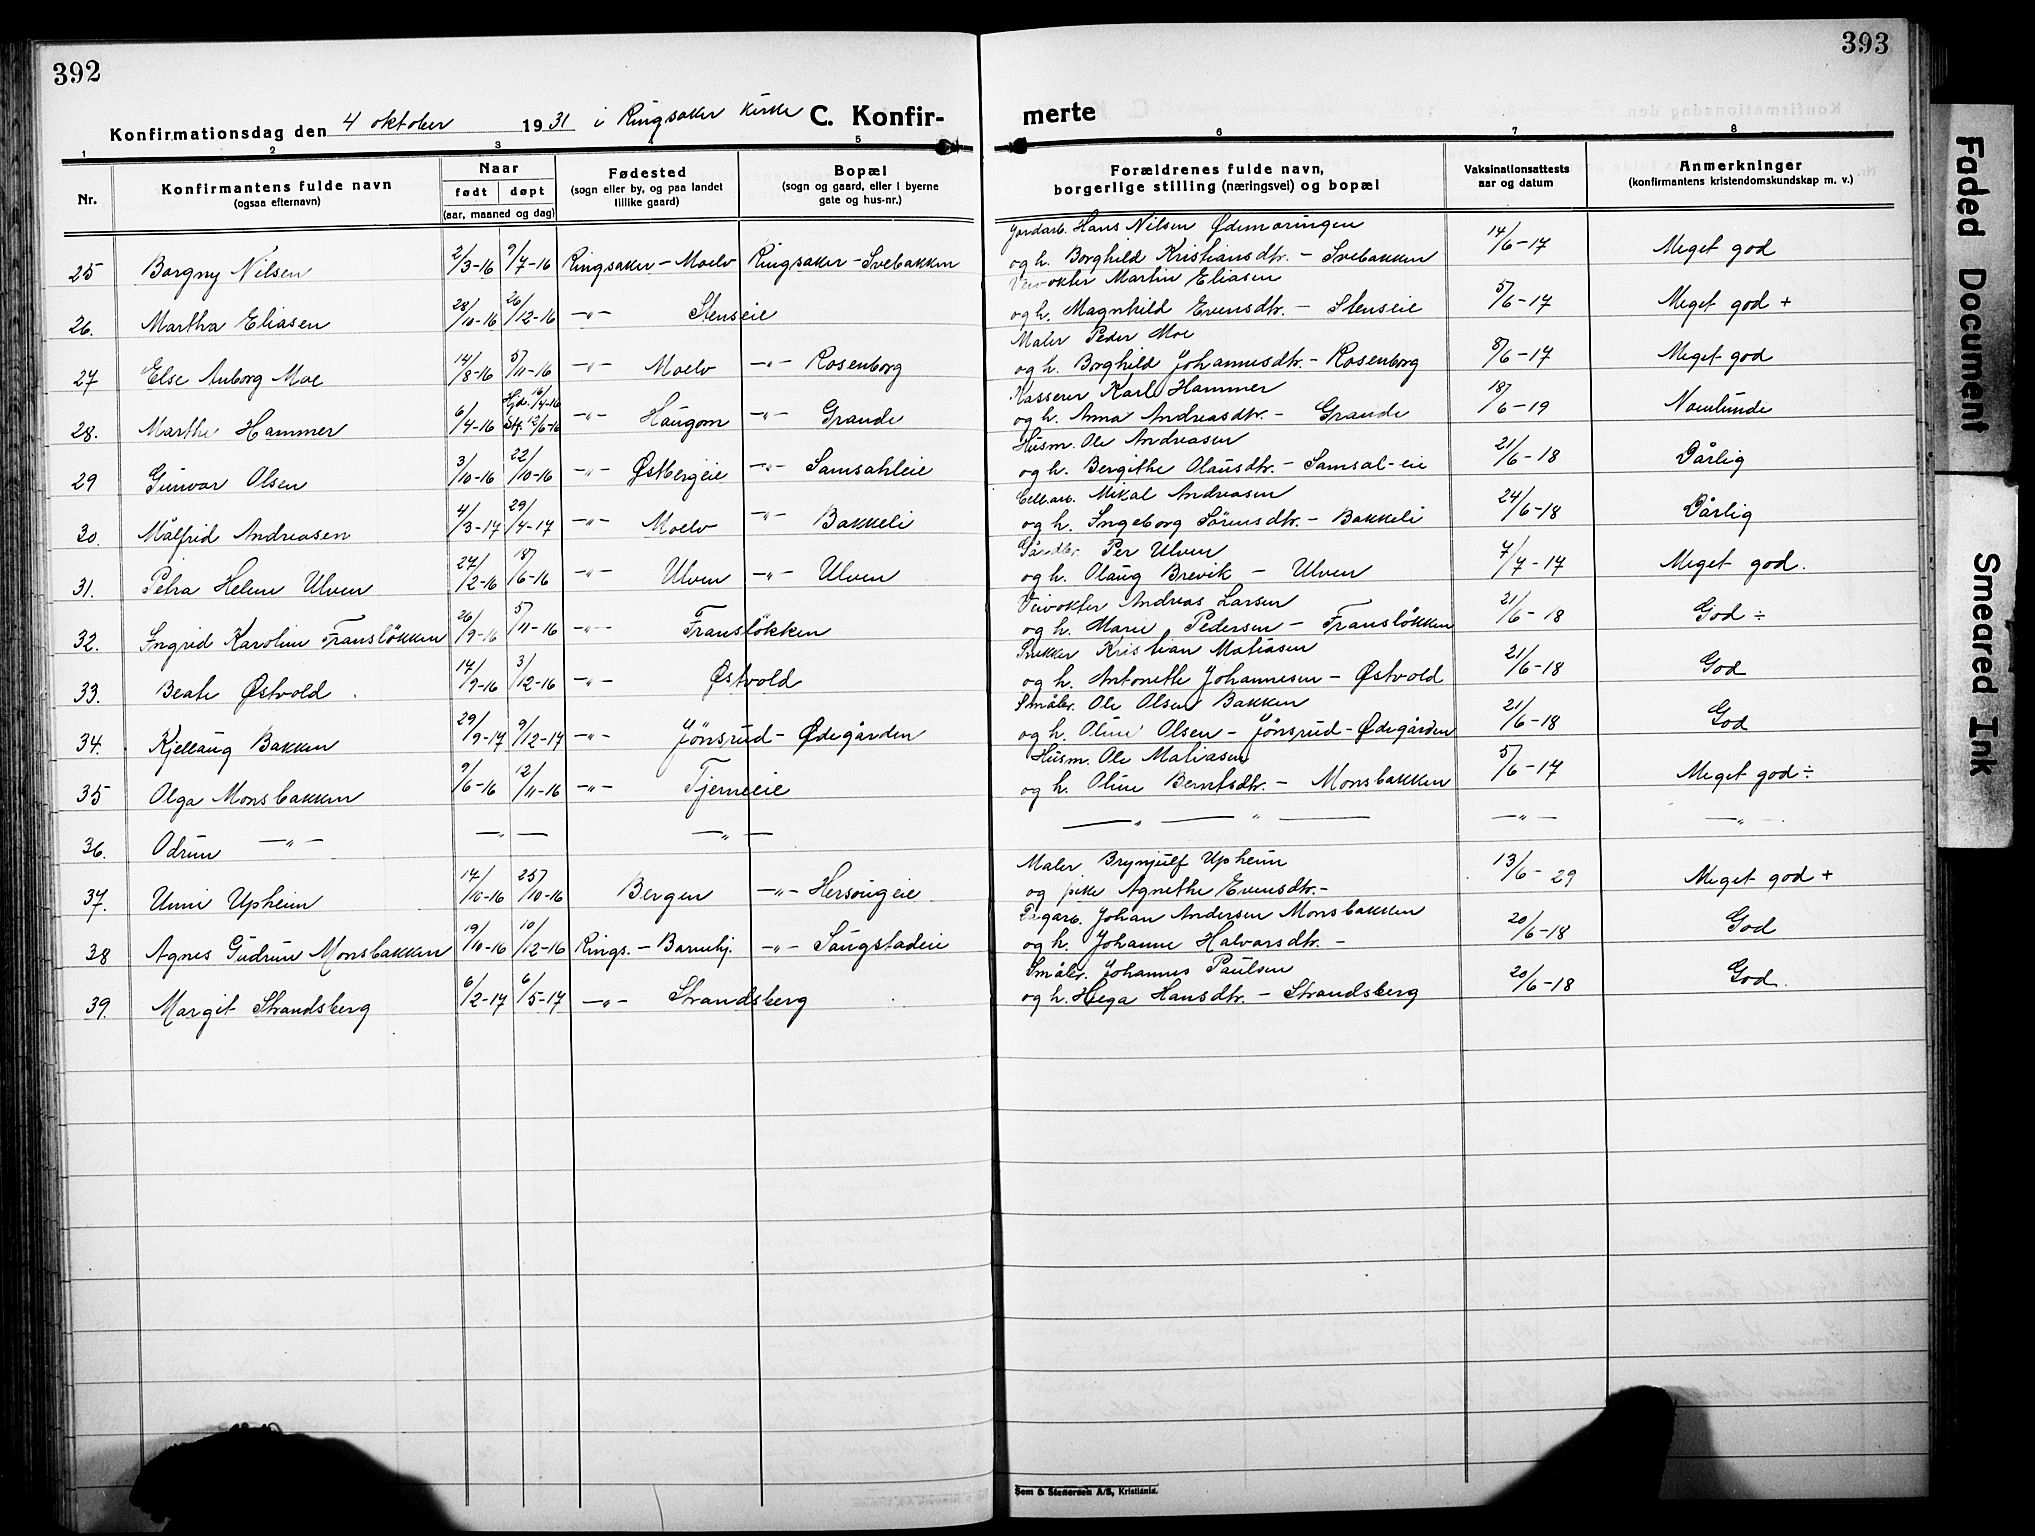 392
393
Konfirmationsdag den 4 oktober 1931 i Ringsaker kirke C. Konfir-
merte
1 2 3 4 5 6 7 8
Nr.
Konfirmantens fulde navn
(ogsaa efternavn)
Naar
født døpt
(aar, maaned og dag)
Fødested
(sogn eller by, og paa landet
tillike gaard)
Bopæl
(sogn og gaard, eller i byerne
gate og hus-nr.)
Forældrenes fulde navn,
borgerlige stilling (næringsvei) og bopæl
Vaksinationsattests
aar og datum
Anmerkninger
(konfirmantens kristendomskundskap m. v.)
Jordarb. Hans Nilsen Ødemoringen
25 Borgny Nilsen 2/3-16 9/7-16 Ringsaker - Moelv Ringsaker - Svebakken og h. Borghild Kristiansdtr. - Svebakken 14/6-17 Meget god
Veivokter Martin Eliasen
26. Martha Eliasen 28/10-16 26/12-16 -"- Stenseie og h. Magnhild Evensdtr. - Stenseie 5/6-17 Meget god +
Maler Peder Moe
27 Else Anborg Moe 14/8-16 5/11-16 -"- Moelv -"- Rosenborg og h. Borghild Johannesdtr. - Rosenborg 8/6-17 Meget god
Kasserer Karl Hammer
28. Marthe Hammer 6/4-16 Hjd. 16/4-16 Stf. 12/6-16 -"- Haugom -"- Grande og h. Anna Andreasdtr. - Grande 18/6-19 Noenlunde
Husm. Ole Andreasen
29 Gunvor Olsen 3/10-16 22/10-16 -"- Østbergeie -"- Samsahleie og h. Bergithe Olausdtr. - Samsal-eie 21/6-18 Dårlig
Cellarb. Mikal Andreasen
30. Målfrid Andreasen 4/3-17 29/4-17 -"- Moelv -"- Bakkeli og h. Ingeborg Sørensdtr. - Bakkeli 24/6-18 Dårlig
Gårdbr. Per Ulven
31. Petra Helene Ulven 27/2-16 18/6-16 -"- Ulven -"- Ulven og h. Olaug Brevik - Ulven 7/7-17 Meget god.
Veivokter Andreas Larsen
32. Ingrid Karoline Fransløkken 26/9-16 5/11-16 -"- Fransløkken og h. Marie Pedersen - Fransløkken 21/6-18 God ÷
Snekker Kristian Matiasen
33. Beate Østvold 17/9-16 3/12-16 -"- Østvold og h. Antonette Johannesen - Østvold 21/6-18 God
Småbr. Ole Olsen Bakken
34. Kjellaug Bakken 29/9-17 9/12-17 -"- Jønsrud - Ødegården og h. Oline Olsen - Jønsrud - Ødegården 21/6-18 God
Husm. Ole Matiasen
35 Olga Monsbakken 9/6-16 12/11-16 -"- Tjerneeie og h. Oline Berntsdtr. - Monsbakken 5/6-17 Meget god ÷
36. Odrun -"- -"- -"- -"- -"- -"- -"-
Maler Brynjulf Upheim
37. Unni Upheim 14/10-16 25/10-16 Bergen -"- Hersougeie og pike Agnethe Evensdtr. - 13/6-29 Meget god +
Dagarb. Johan Andersen Monsbakken
38 Agnes Gudrun Monsbakken 19/10-16 10/12-16 Rings. - Barnehj. -"- Saugstadeie og h. Johanne Halvorsdtr. - 20/6-18 God
Småbr. Johannes Paulsen
39. Margit Strandsberg 6/2-17 6/5-17 -"- Strandsberg og h. Helga Hansdtr. - Strandsberg 20/6-18 God.
Sem & Stenersen A/S, Kristiania.
Faded Document
Smeared Ink